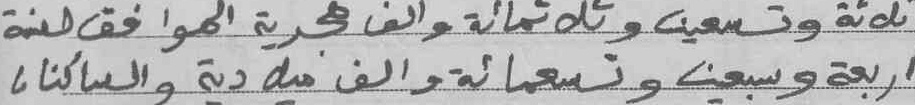 ثلاثة وتسعين وثلاثمائة والف هجرية الموافق لسنة
اربعة وسبعين وتسعمائة والف ميلادية والساكنان